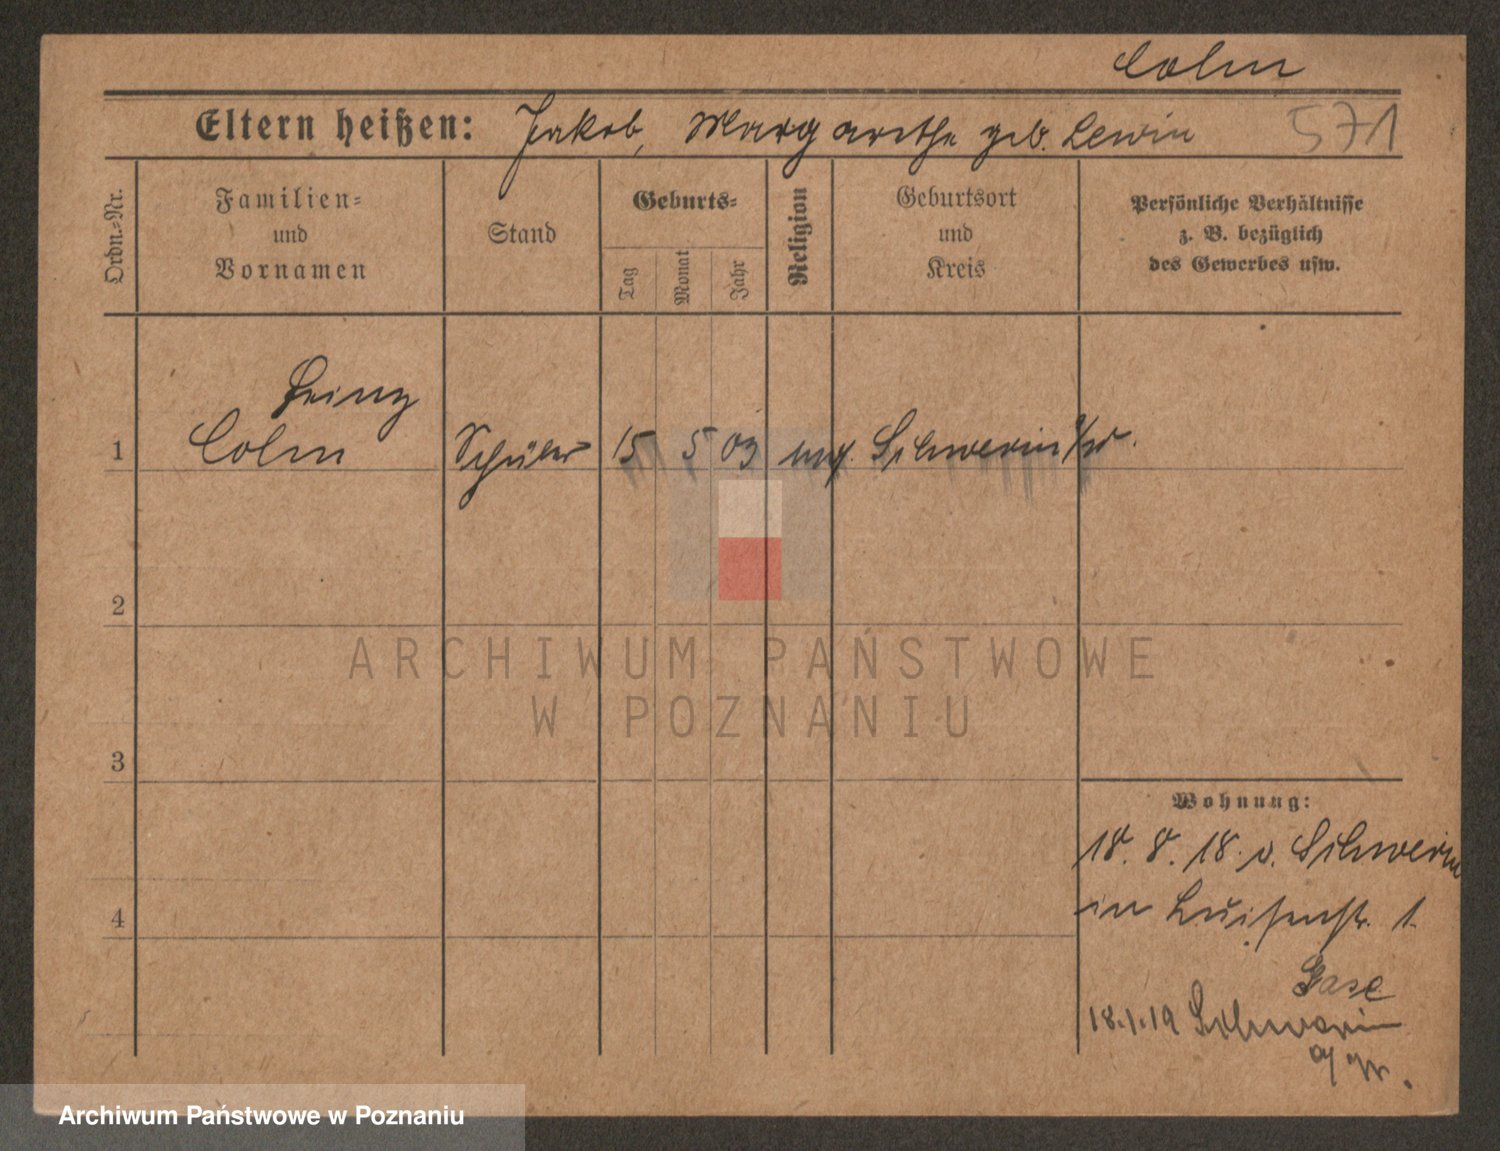 Colm
Eltern heißen: Jakob, Margarethe geb. Lewin 571
Ordn.-Nr.
Familien-
und
Vornamen
Stand
Geburts-
Tag
Monat
Jahr
Religion
Geburtsort
und
Kreis
Persönliche Verhältnisse
z. B. bezüglich
des Gewerbes usw.
Heinz
1 Colm Schüler 15 5 03 Schwerin a/W.
2
ARCHIWUM PAŃSTWOWE
W POZNANIU
3
Wohnung:
18. 8. 18. v. Schwerin
4
in Luisenstr. 1.
18.1.19 Schwerin
a/W.
Archiwum Państwowe w Poznaniu